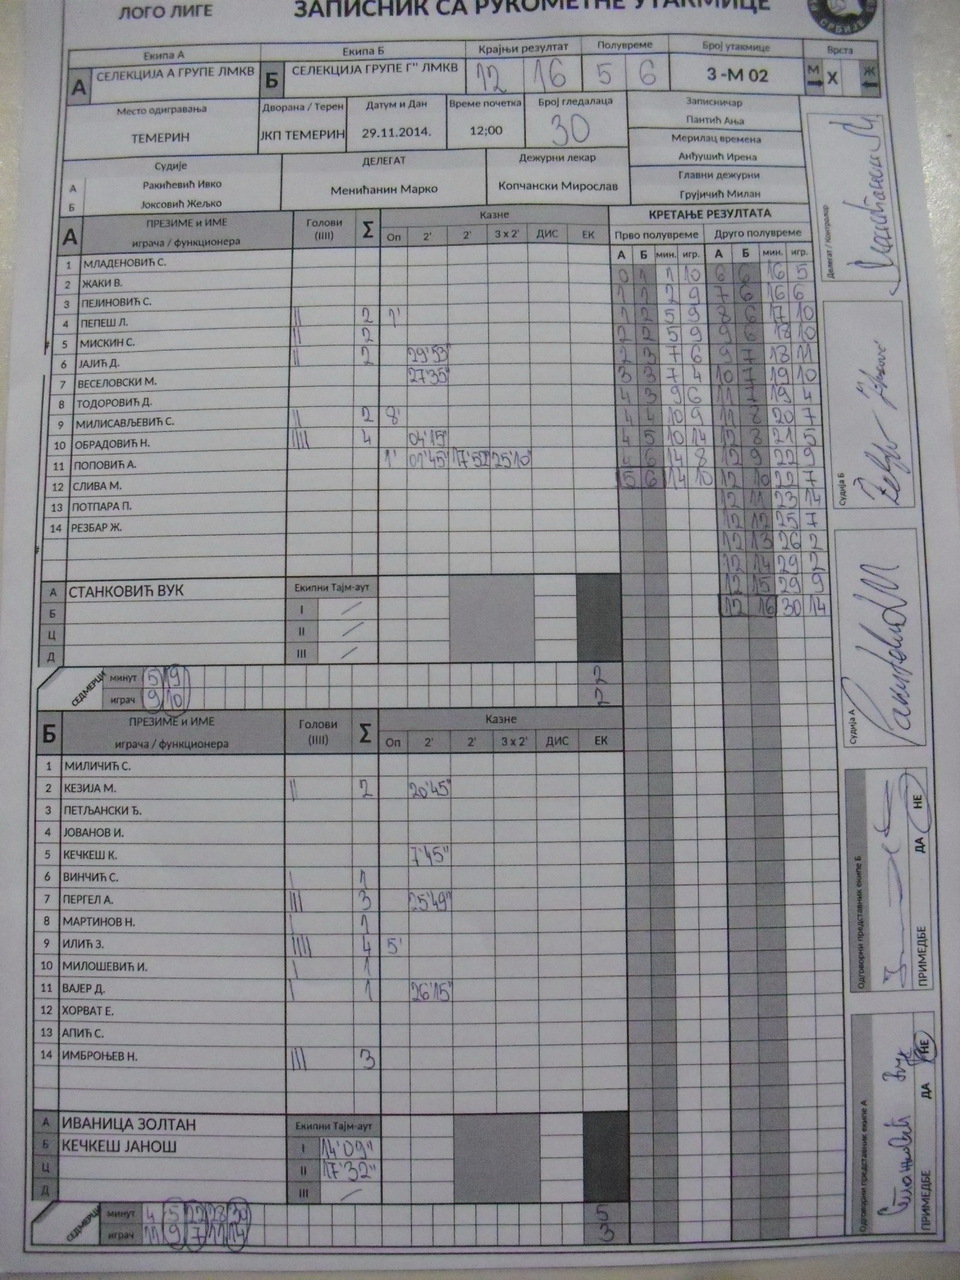 ЛОГО ЛИГЕ ЗАПИСНИК СА РУКОМЕТНЕ УТАКМИЦЕ
Екипа А Екипа Б Крајњи резултат Полувреме Број утакмице Врста
А СЕЛЕКЦИЈА А ГРУПЕ ЛМКВ Б СЕЛЕКЦИЈА ГРУПЕ Г" ЛМКВ 12 16 5 6 3 -М 02 М X Ж
Место одигравања Дворана / Терен Датум и Дан Време почетка Број гледалаца Записничар
ТЕМЕРИН ЈКП ТЕМЕРИН 29.11.2014. 12;00 30 Пантић Ања
Мерилац времена
Анђушић Ирена
Судије ДЕЛЕГАТ Дежурни лекар Главни дежурни
А Ракићевић Ивко Менићанин Марко Копчански Мирослав Грујичић Милан
Б Јоксовић Жељко
А ПРЕЗИМЕ и ИМЕ играча / функционера Голови (IIII) Σ Казне КРЕТАЊЕ РЕЗУЛТАТА
Оп 2' 2' 3 x 2' ДИС ЕК Прво полувреме Друго полувреме
А Б мин. игр. А Б мин. игр.
1 МЛАДЕНОВИЋ С.
2 ЖАКИ В.
3 ПЕЈИНОВИЋ С.
4 ПЕПЕШ Л. || 2 1'
5 МИСКИН С. || 2
6 ЈАЈИЋ Д. || 2 29'53"
7 ВЕСЕЛОВСКИ М. 27'35"
8 ТОДОРОВИЋ Д.
9 МИЛИСАВЉЕВИЋ С. || 2 8'
10 ОБРАДОВИЋ Н. |||| 4 04'15"
11 ПОПОВИЋ А. 1' 01'45" 17'52" 25'10"
12 СЛИВА М.
13 ПОТПАРА П.
14 РЕЗБАР Ж.
0 1 1 10 6 6 16 5
1 1 2 9 7 6 16 6
1 2 5 9 8 6 17 10
2 2 5 9 9 6 18 10
2 3 7 6 9 7 18 11
3 3 7 4 10 7 19 10
4 3 9 6 11 7 19 4
4 4 10 9 11 8 20 7
4 5 10 14 12 8 21 5
6 14 8 12 9 22 9
5 6 14 10 12 10 22 7
12 11 23 14
12 12 25 7
12 13 26 2
12 14 29 2
12 15 29 9
12 16 30 14
А СТАНКОВИЋ ВУК Екипни Тајм-аут
Б I /
Ц II /
Д III /
СЕДМЕРЦИ минут 5 19 2
играч 9 10 2
Б ПРЕЗИМЕ и ИМЕ играча / функционера Голови (IIII) Σ Казне
Оп 2' 2' 3 x 2' ДИС ЕК
1 МИЛИЧИЋ С.
2 КЕЗИЈА М. || 2 20'45"
3 ПЕТЉАНСКИ Ђ.
4 ЈОВАНОВ И.
5 КЕЧКЕШ К. 7'45"
6 ВИНЧИЋ С. | 1
7 ПЕРГЕЛ А. ||| 3 25'49"
8 МАРТИНОВ Н. | 1
9 ИЛИЋ З. |||| 4 5'
10 МИЛОШЕВИЋ И. | 1
11 ВАЈЕР Д. | 1 26'15"
12 ХОРВАТ Е.
13 АПИЋ С.
14 ИМБРОЊЕВ Н. ||| 3
А ИВАНИЦА ЗОЛТАН Екипни Тајм-аут
Б КЕЧКЕШ ЈАНОШ I 14'09"
Ц II 17'32"
Д III /
СЕДМЕРЦИ минут 4 5 22 28 30 5
играч 11 9 7 11 14 3
Делегат / Контролор
Судија Б
Судија А
Одговорни представник екипе Б
ПРИМЕДБЕ ДА НЕ
Одговорни представник екипе А
ПРИМЕДБЕ ДА НЕ